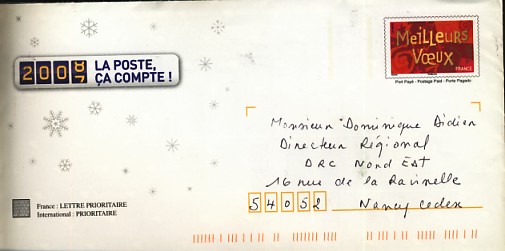 MEILLEURS
VŒUX
FRANCE
Port Payé - Postage Paid - Porte Pagado
2008
7
LA POSTE,
ÇA COMPTE !
Monsieur Dominique Didier
Directeur Régional
DRC Nord EST
16 rue de la Ravinelle
54052 Nancy Cedex
France : LETTRE PRIORITAIRE
International : PRIORITAIRE